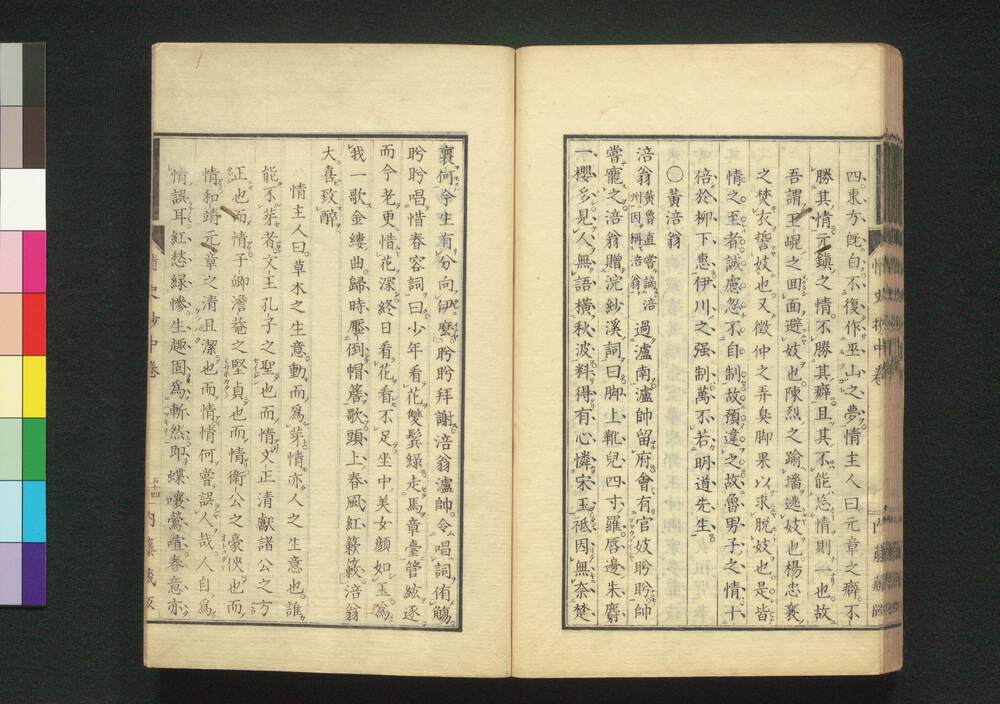 四東方既白不復作巫山之夢情主人曰元章之癖不
勝其情元鎮之情不勝其癖且其不能忘情則一也故
吾謂王崐之回面避妓也陳烈之踰墻逃妓也楊忠襄
之焚衣誓妓也又徵仲之弄臭脚果以求脱妓也是皆
情之至者誠慮忽不自制故預違之故魯男子之情十
倍於柳下惠伊川之强制萬不若明道先生
〇黄涪翁
涪翁黄魯直嘗謫涪州因稱涪翁過瀘南瀘帥留府會有官妓盻盻帥
嘗寵之涪翁贈浣紗溪詞曰脚上靴兒四寸羅唇邊朱麝
一櫻多見人無語横秋波料得有心憐宋玉祗因無奈楚
襄何今生有分向伊麼盻盻拜謝涪翁瀘帥令唱詞侑觴
盻盻唱惜春容詞曰少年看花雙鬂緑走馬章臺管絃逐
而今老更惜花深終日看花看不足坐中美女顔如玉爲
我一歌金縷曲歸時壓倒帽簷歌頭上春風紅簌簌涪翁
大喜致醉
情主人曰草木之生意動而爲芽情亦人之生意也誰
能不芽者文王孔子之聖也而情文正清獻諸公之方
正也而情子卿澹菴之堅貞也而情衛公之豪俠也而
情和靖元章之清且潔也而情情何嘗誤人哉人自爲
情誤耳紅愁緑慘生趣固爲斬然即蝶嚷鶯喧春意亦
情史抄中卷
五十四